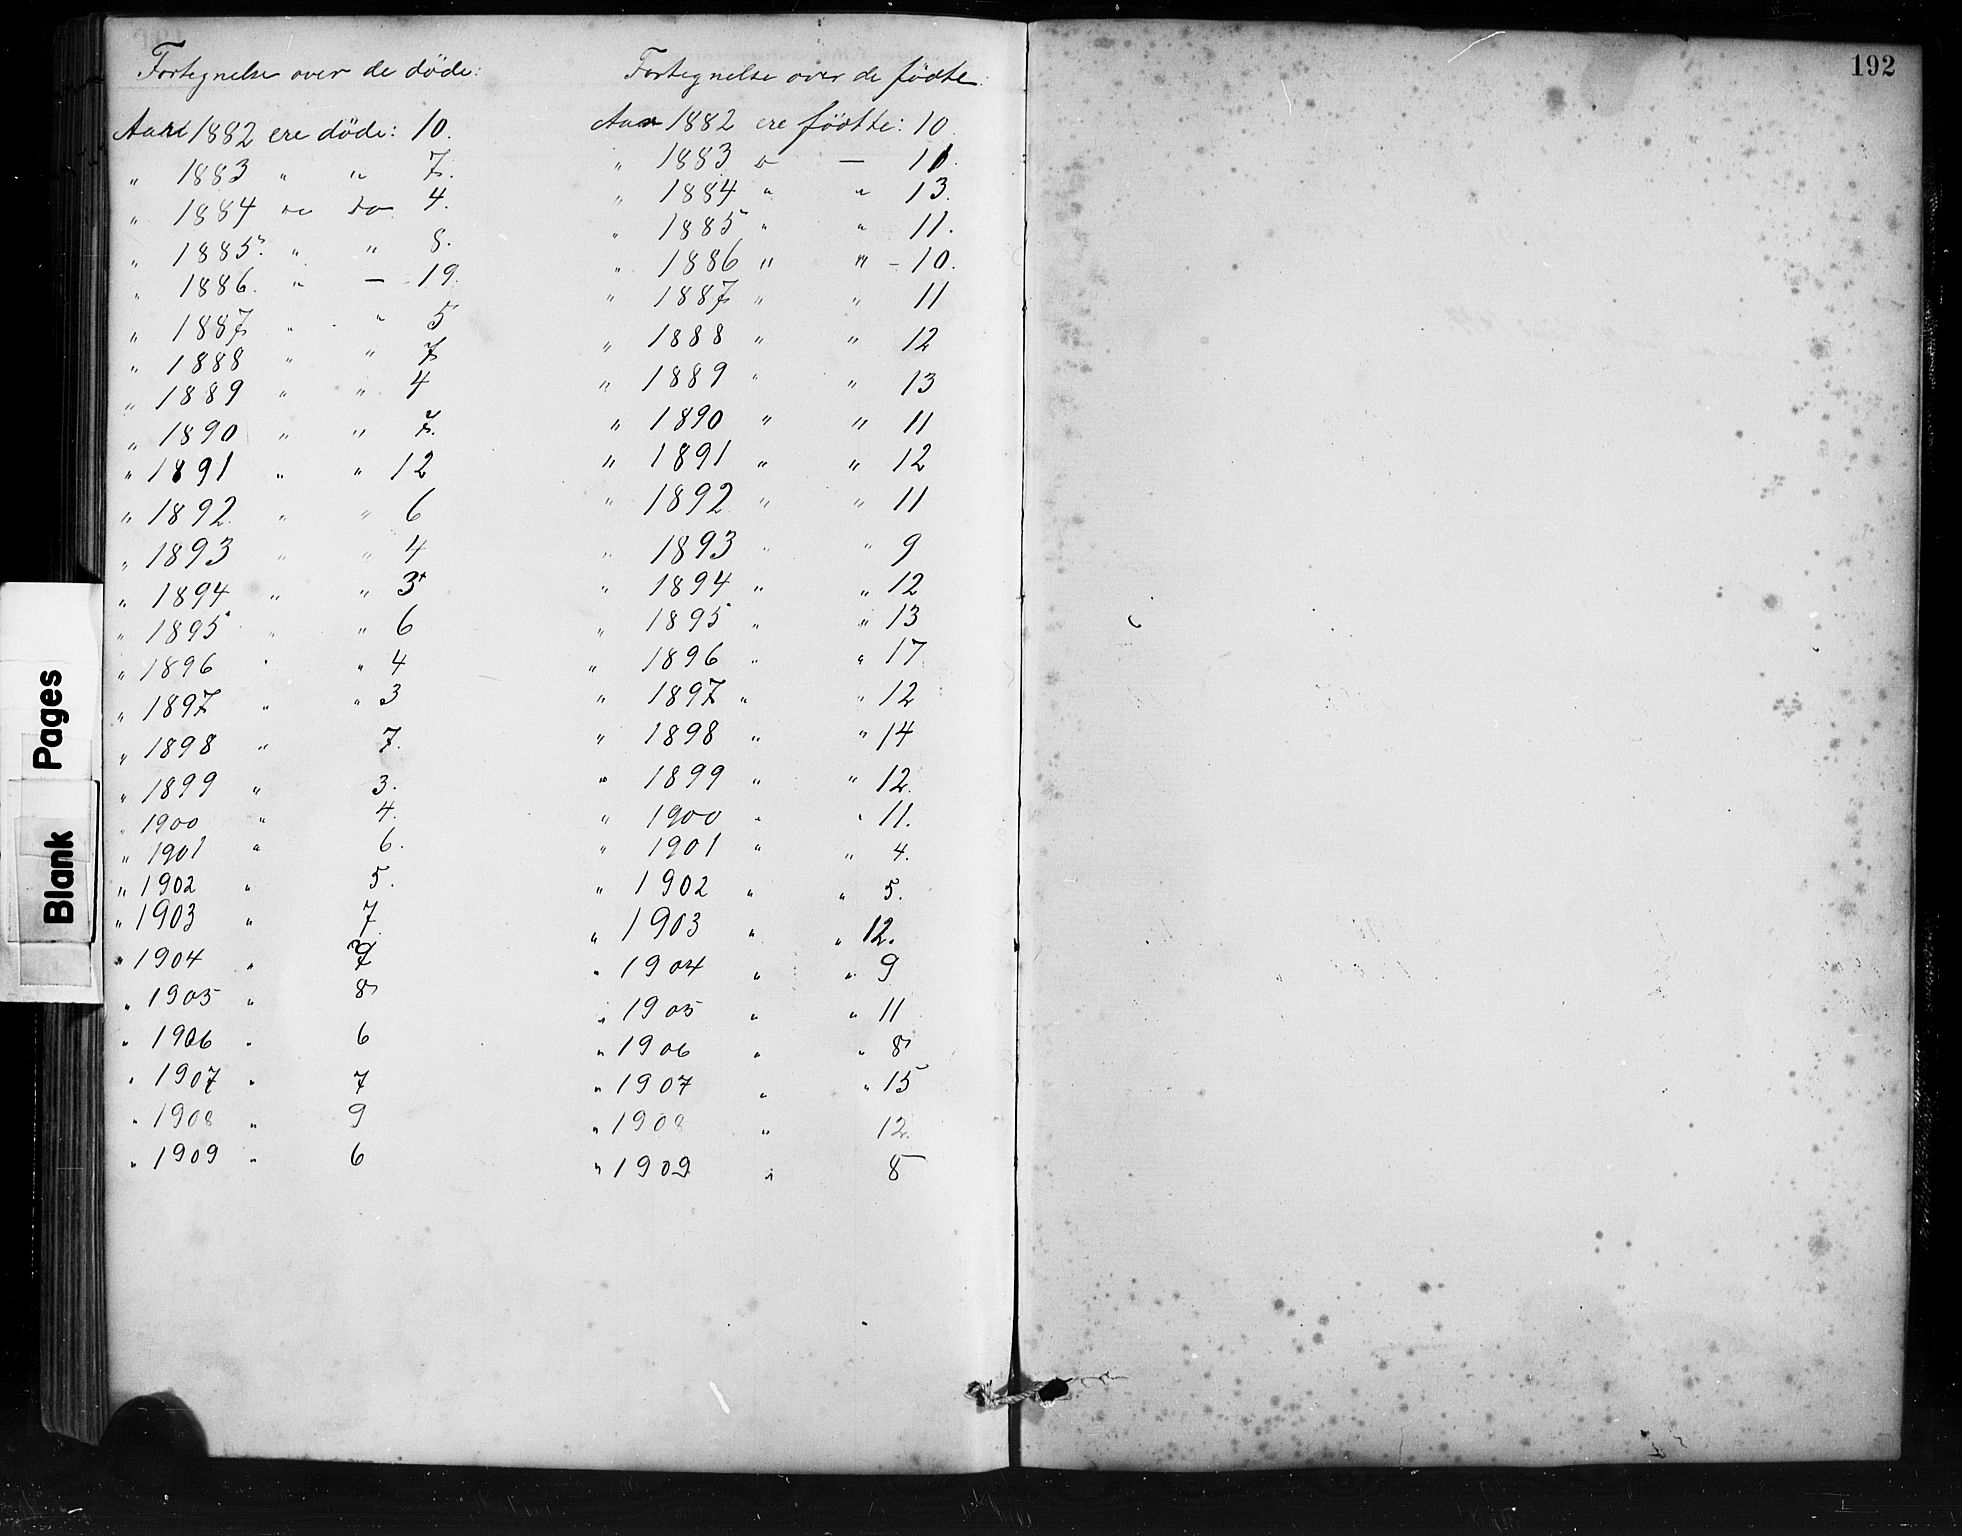 192
Fortegnelse over de døde:
Aaret 1882 ere døde: 10.
" 1883 " " 7.
" 1884 do do 4.
" 1885. " " 8.
" 1886. " — 19.
" 1887 " " 5
" 1888 " " 7
" 1889 " " 4
" 1890 " " 7.
" 1891 " " 12
" 1892 " " 6
" 1893 " " 4
" 1894 " " 3
" 1895 " " 6
" 1896 " " 4
" 1897 " " 3
" 1898 " 7.
" 1899 " 3.
" 1900 " 4.
" 1901 " 6.
" 1902 " 5.
" 1903 " 7
" 1904 "
" 1905 " 8
" 1906 " 6
" 1907 " 7
" 1908 " 9
" 1909 " 6
Fortegnelse over de fødte.
Aar 1882 ere fødtte: 10.
" 1883 " — 11.
" 1884 " " 13.
" 1885 " " 11.
" 1886 " " - 10.
" 1887 " " 11
" 1888 " " 12
" 1889 " " 13
" 1890 " " 11
" 1891 " " 12
" 1892 " " 11
" 1893 " " 9
" 1894 " " 12
" 1895 " " 13
" 1896 " " 17
" 1897 " " 12
" 1898 " " 14
" 1899 " " 12.
" 1900 " " 11.
" 1901 " " 4.
" 1902 " " 5.
" 1903 " " 12.
" 1904 " " 9
" 1905 " " 11
" 1906 " " 8
" 1907 " " 15
" 1908 " 12.
" 1909 " 8
Blank Pages